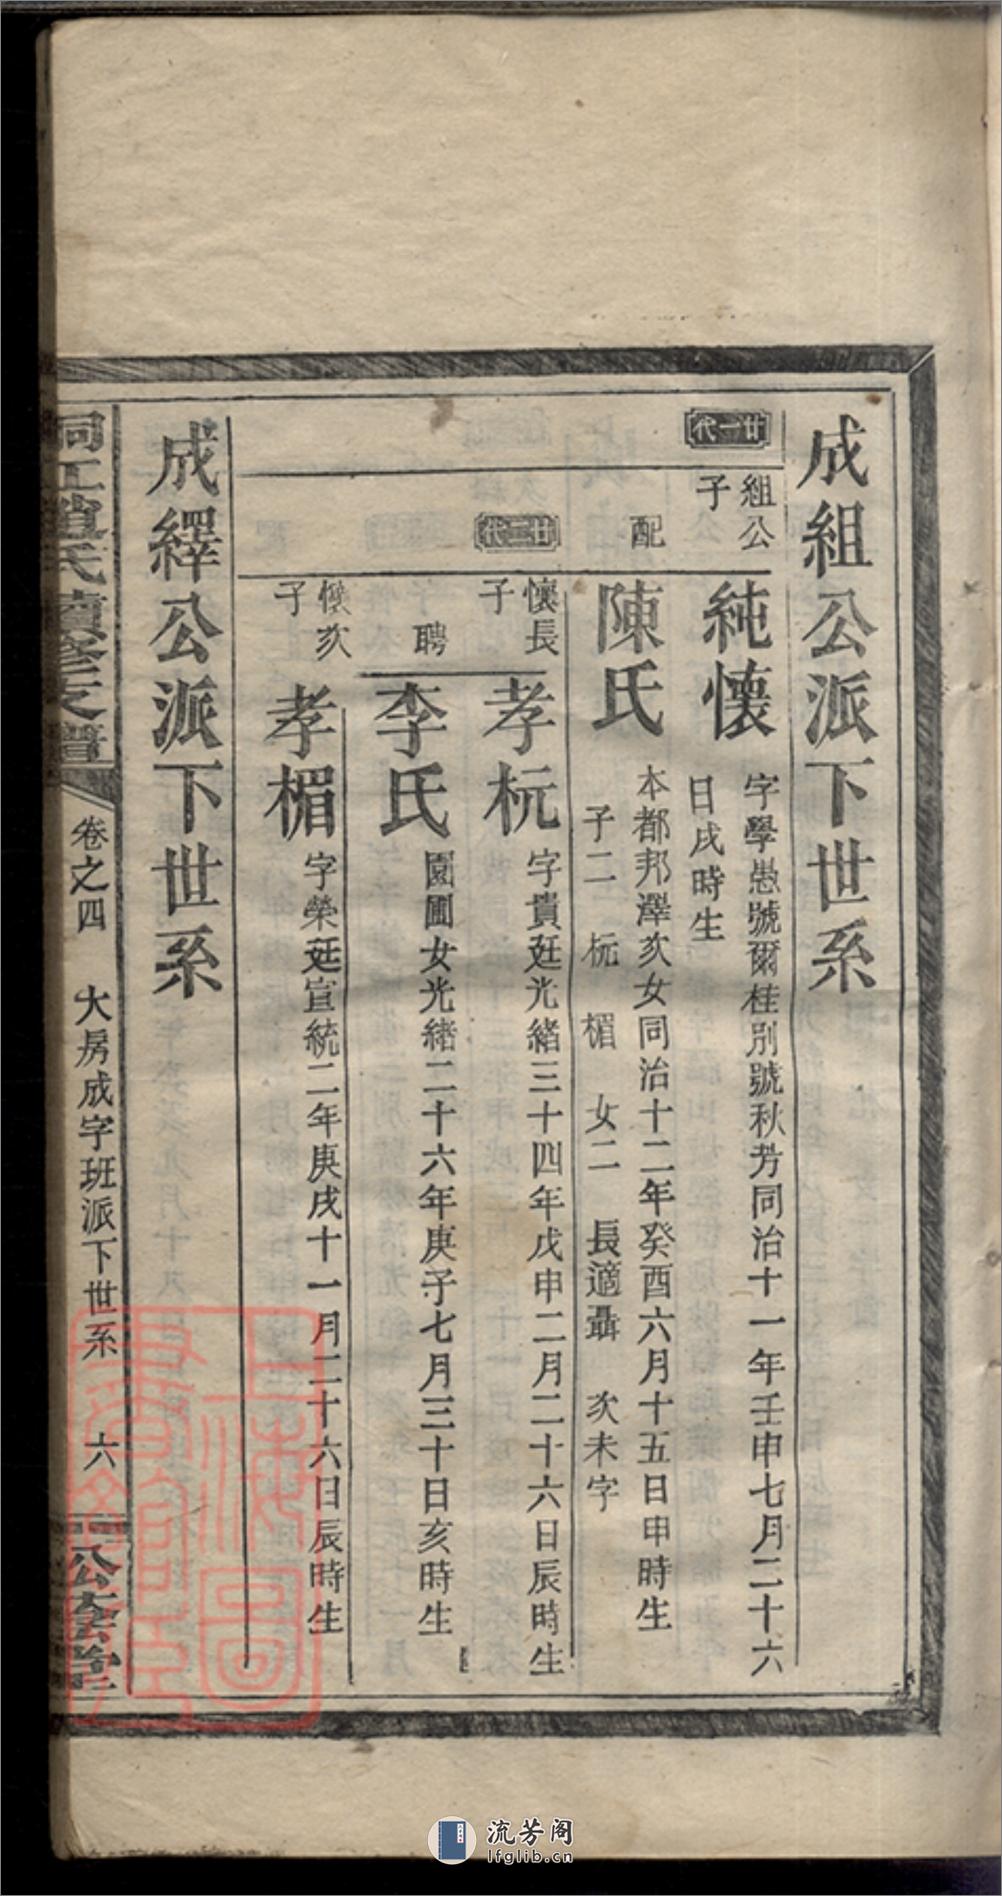 成組公派下世系
廿一代
組公子
純懷
字學愚號爾桂別號秋芳同治十一年壬申七月二十六
日戌時生
配
陳氏
本都邦澤次女同治十二年癸酉六月十五日申時生
子二 杬 楣 女二 長適聶 次未字
廿二代
懷長子
孝杬
字貴廷光緒三十四年戊申二月二十六日辰時生
聘
李氏
園圃女光緒二十六年庚子七月三十日亥時生
懷次子
孝楣
字榮廷宣統二年庚戌十一月二十六日辰時生
成繹公派下世系
趙氏續修支譜
卷之四 大房成字班派下世系 六
上海圖書館藏
流芳阁
lfglib.cn